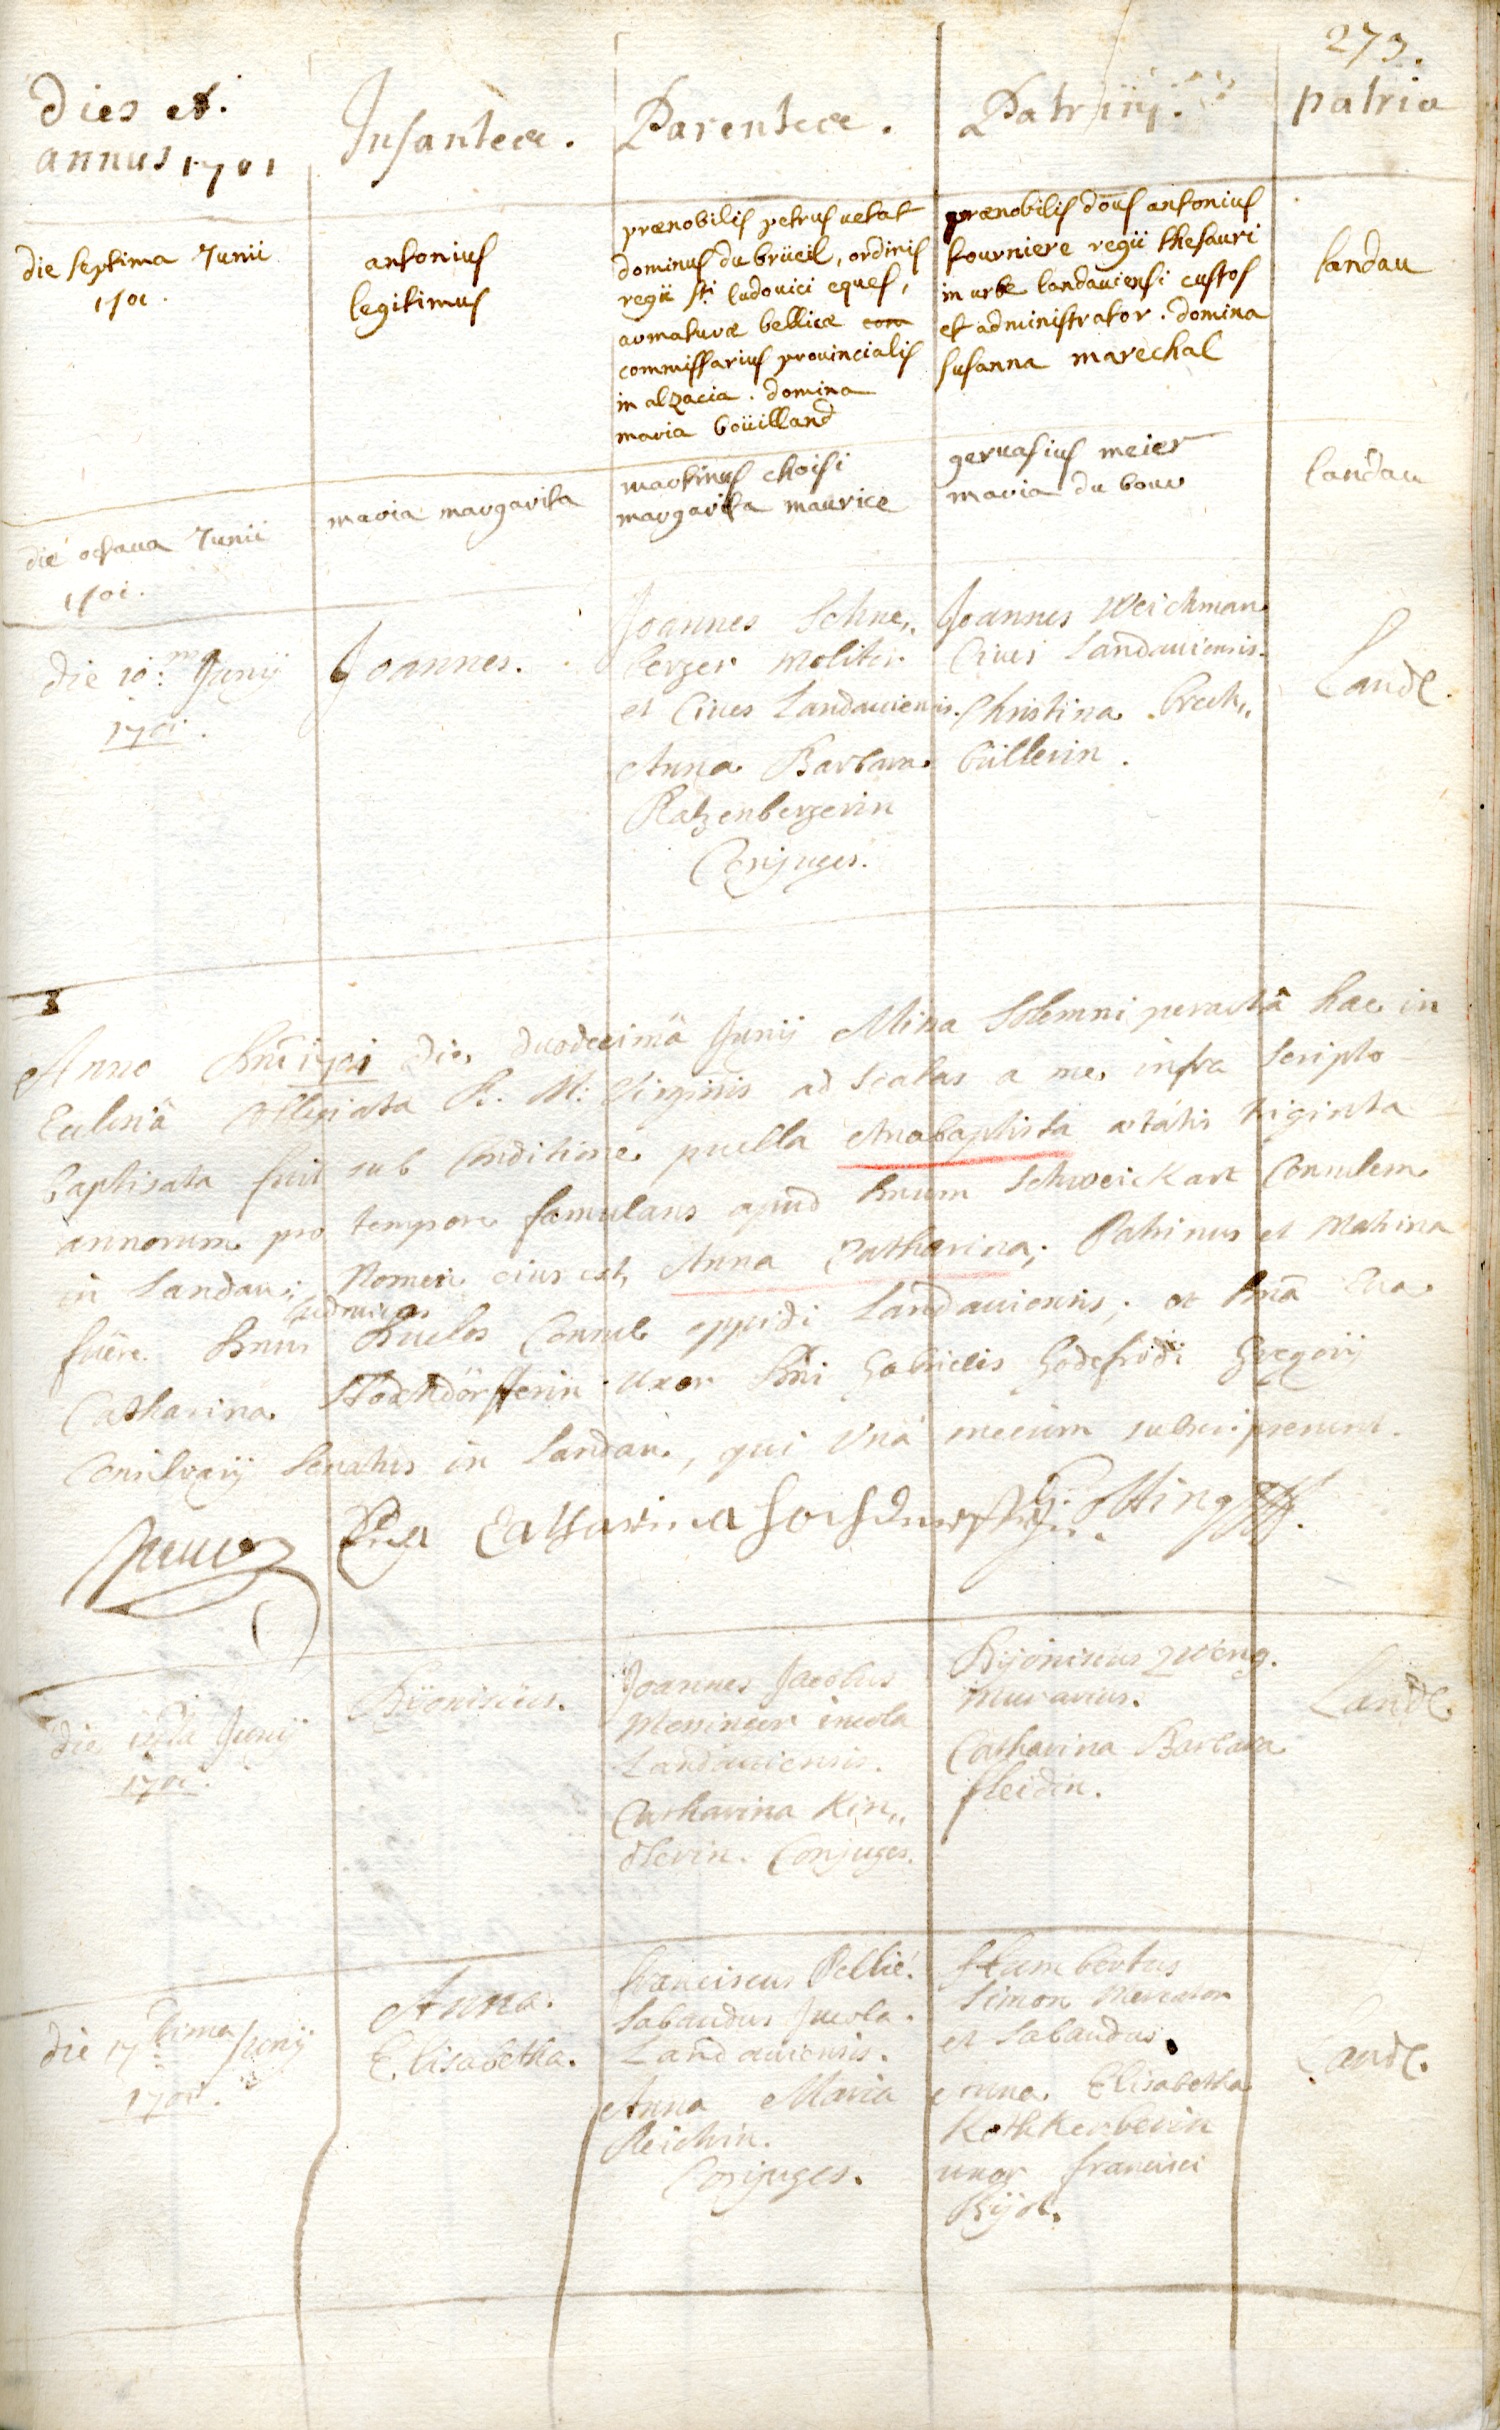 273.
Dies et
annus 1701
Infantes.
Parentes.
Patrini.
patria
die septima Junii
1701.
antonius
legitimus
prænobilis petrus uetat
dominus du brüeil, ordinis
regii sti ludouici eques,
armaturæ bellicæ com
commissarius prouincialis
in alzacia. domina
maria boüilland
prænobilis dõus antonius
fourniere regii thesauri
in urbe landauiensi custos
et administrator. domina
susanna marechal
landau
die octaua Junii
1701.
maria margarita
martinus choisi
margarita maurice
geruasius meier
maria du bour
landau
die 10: Junij
1701.
Joannes.
Joannes Schne,,
berger Molitor
et Ciues Landauiensis.
Anna Barbara
Katzenbergerin
Conjuges.
Joannes Weichman
Ciues Landauiensis.
Christina Brech,,
büllerin.
Land.
Anno Dni 1701 Die duodecimâ Junij Missa Solemni peractâ hac in
Eclesiâ Collegiata B: M: Virginis ad Scalas a me infra Scripto
baptisata fuit sub Conditione puella Anabaptista ætatis triginta
annorum pro tempore famulans apud Dnum Schweickart Consulem
in Landau; Nomen eius est, Anna Catharina; Patrinus et Matrina
fuêre Dnus Ludouicus Consul oppidi Landauiensis; et Dnâ Eua
Catharina Hochdörfferin Uxor Dni Gabrielis Godefridi Gregorij
Consiliarij Senatus in Landau, qui Vnà mecum subscripserunt.
Eva Catharina Hochdörfferin
die Junij
1701.
Dÿonisius.
Joannes Jacobus
Messinger incola
Landauiensis.
Catharina Kin,,
dlerin. Conjuges.
Dÿonisius Zweng.
Murarius.
Catharina Barbara
fleidin.
Land.
die 17tima Junij
1701.
Anna
Elisabetha.
franciscus Pellié.
Sabaudus Incola
Landauiensis.
Anna Maria
Reichin.
Conjuges.
Humbertus
Simon Mercator
et Sabaudus.
Anna Elisabetha
uxor francisci
Land.